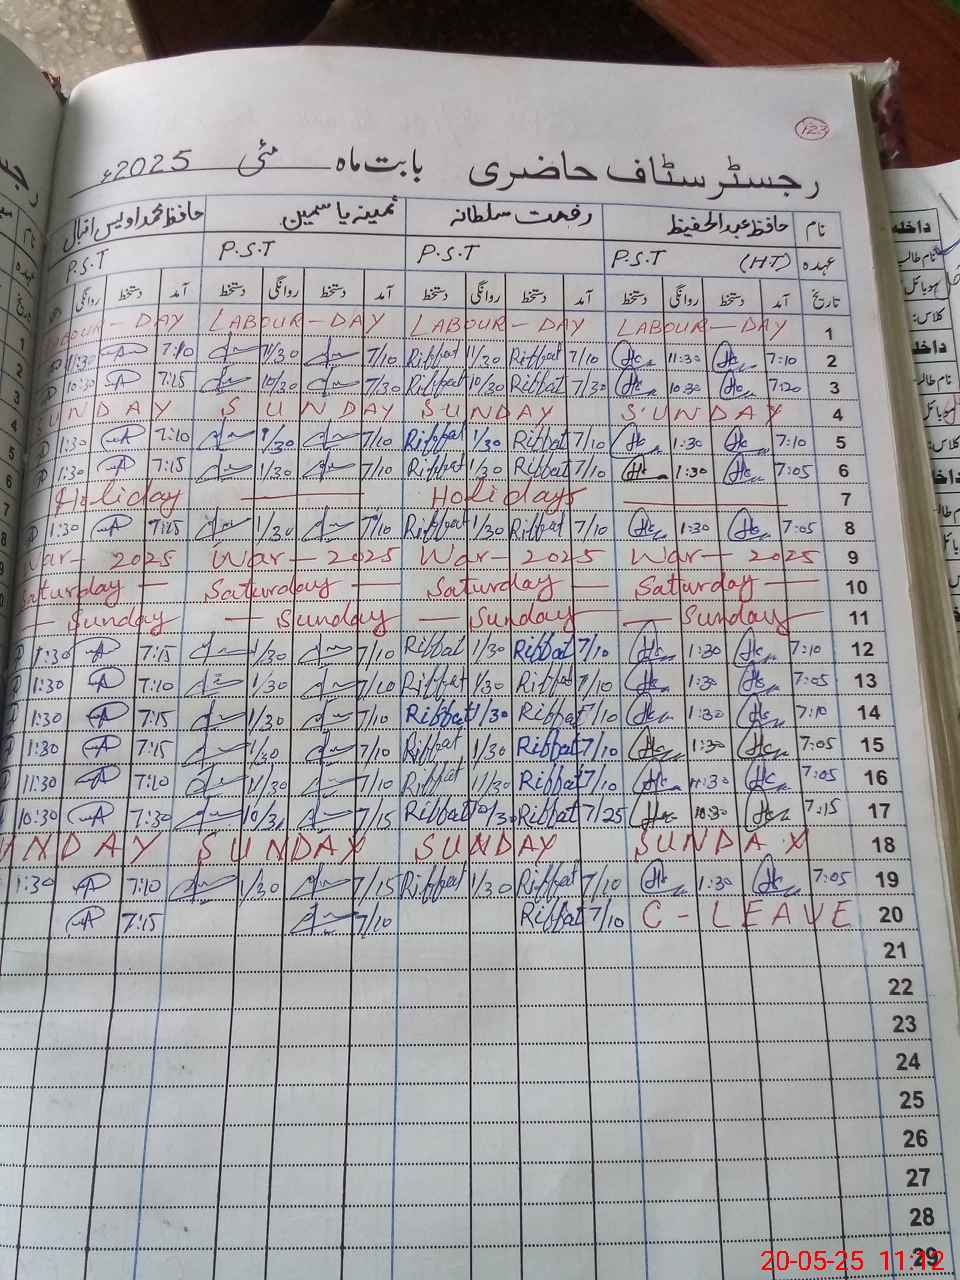 123
رجسٹر سٹاف حاضری بابت ماہ مئی 2025ء
نام حافظ عبدالحفیظ رفعت سلطانہ ثمینہ یاسمین حافظ محمد اویس اقبال
عہدہ P.S.T (H.T) P.S.T P.S.T P.S.T
تاریخ آمد دستخط روانگی دستخط آمد دستخط روانگی دستخط آمد دستخط روانگی دستخط آمد دستخط روانگی
1 LABOUR - DAY LABOUR - DAY LABOUR - DAY LABOUR - DAY
2 7:10 11:30 7/10 Riffat 11/30 Riffat 7/10 11/30 7:10 11:30
3 7:20 10:30 7/30 Riffat 10/30 Riffat 7/30 10/30 7:15 10:30
4 SUNDAY SUNDAY SUNDAY SUNDAY
5 7:10 1:30 7/10 Riffat 1/30 Riffat 7/10 1/30 7:10 1:30
6 7:05 1:30 7/10 Riffat 1/30 Riffat 7/10 1/30 7:15 1:30
7 Holidays Holiday
8 7:05 1:30 7/10 Riffat 1/30 Riffat 7/10 1/30 7:15 1:30
9 War - 2025 War - 2025 War - 2025 War - 2025
10 Saturday Saturday Saturday Saturday
11 Sunday Sunday Sunday Sunday
12 7:10 1:30 7/10 Riffat 1/30 Riffat 7/10 1/30 7:15 1:30
13 7:05 1:30 7/10 Riffat 1/30 Riffat 7/10 1/30 7:10 1:30
14 7:10 1:30 7/10 Riffat 1/30 Riffat 7/10 1/30 7:15 1:30
15 7:05 1:30 7/10 Riffat 1/30 Riffat 7/10 1/30 7:15 1:30
16 7:05 11:30 7/10 Riffat 11/30 Riffat 7/10 11/30 7:10 11:30
17 7:15 10:30 7/25 Riffat 10/30 Riffat 7/15 10/30 7:30 10:30
18 SUNDAY SUNDAY SUNDAY SUNDAY
19 7:05 1:30 7/10 Riffat 1/30 Riffat 7/15 1/30 7:10 1:30
20 C - LEAVE 7/10 Riffat 7/10 7:15
21
22
23
24
25
26
27
28
29
داخلہ
نام طالب
موبائل
کلاس:
داخلہ
نام طالب
موبائل
کلاس:
20-05-25 11:12